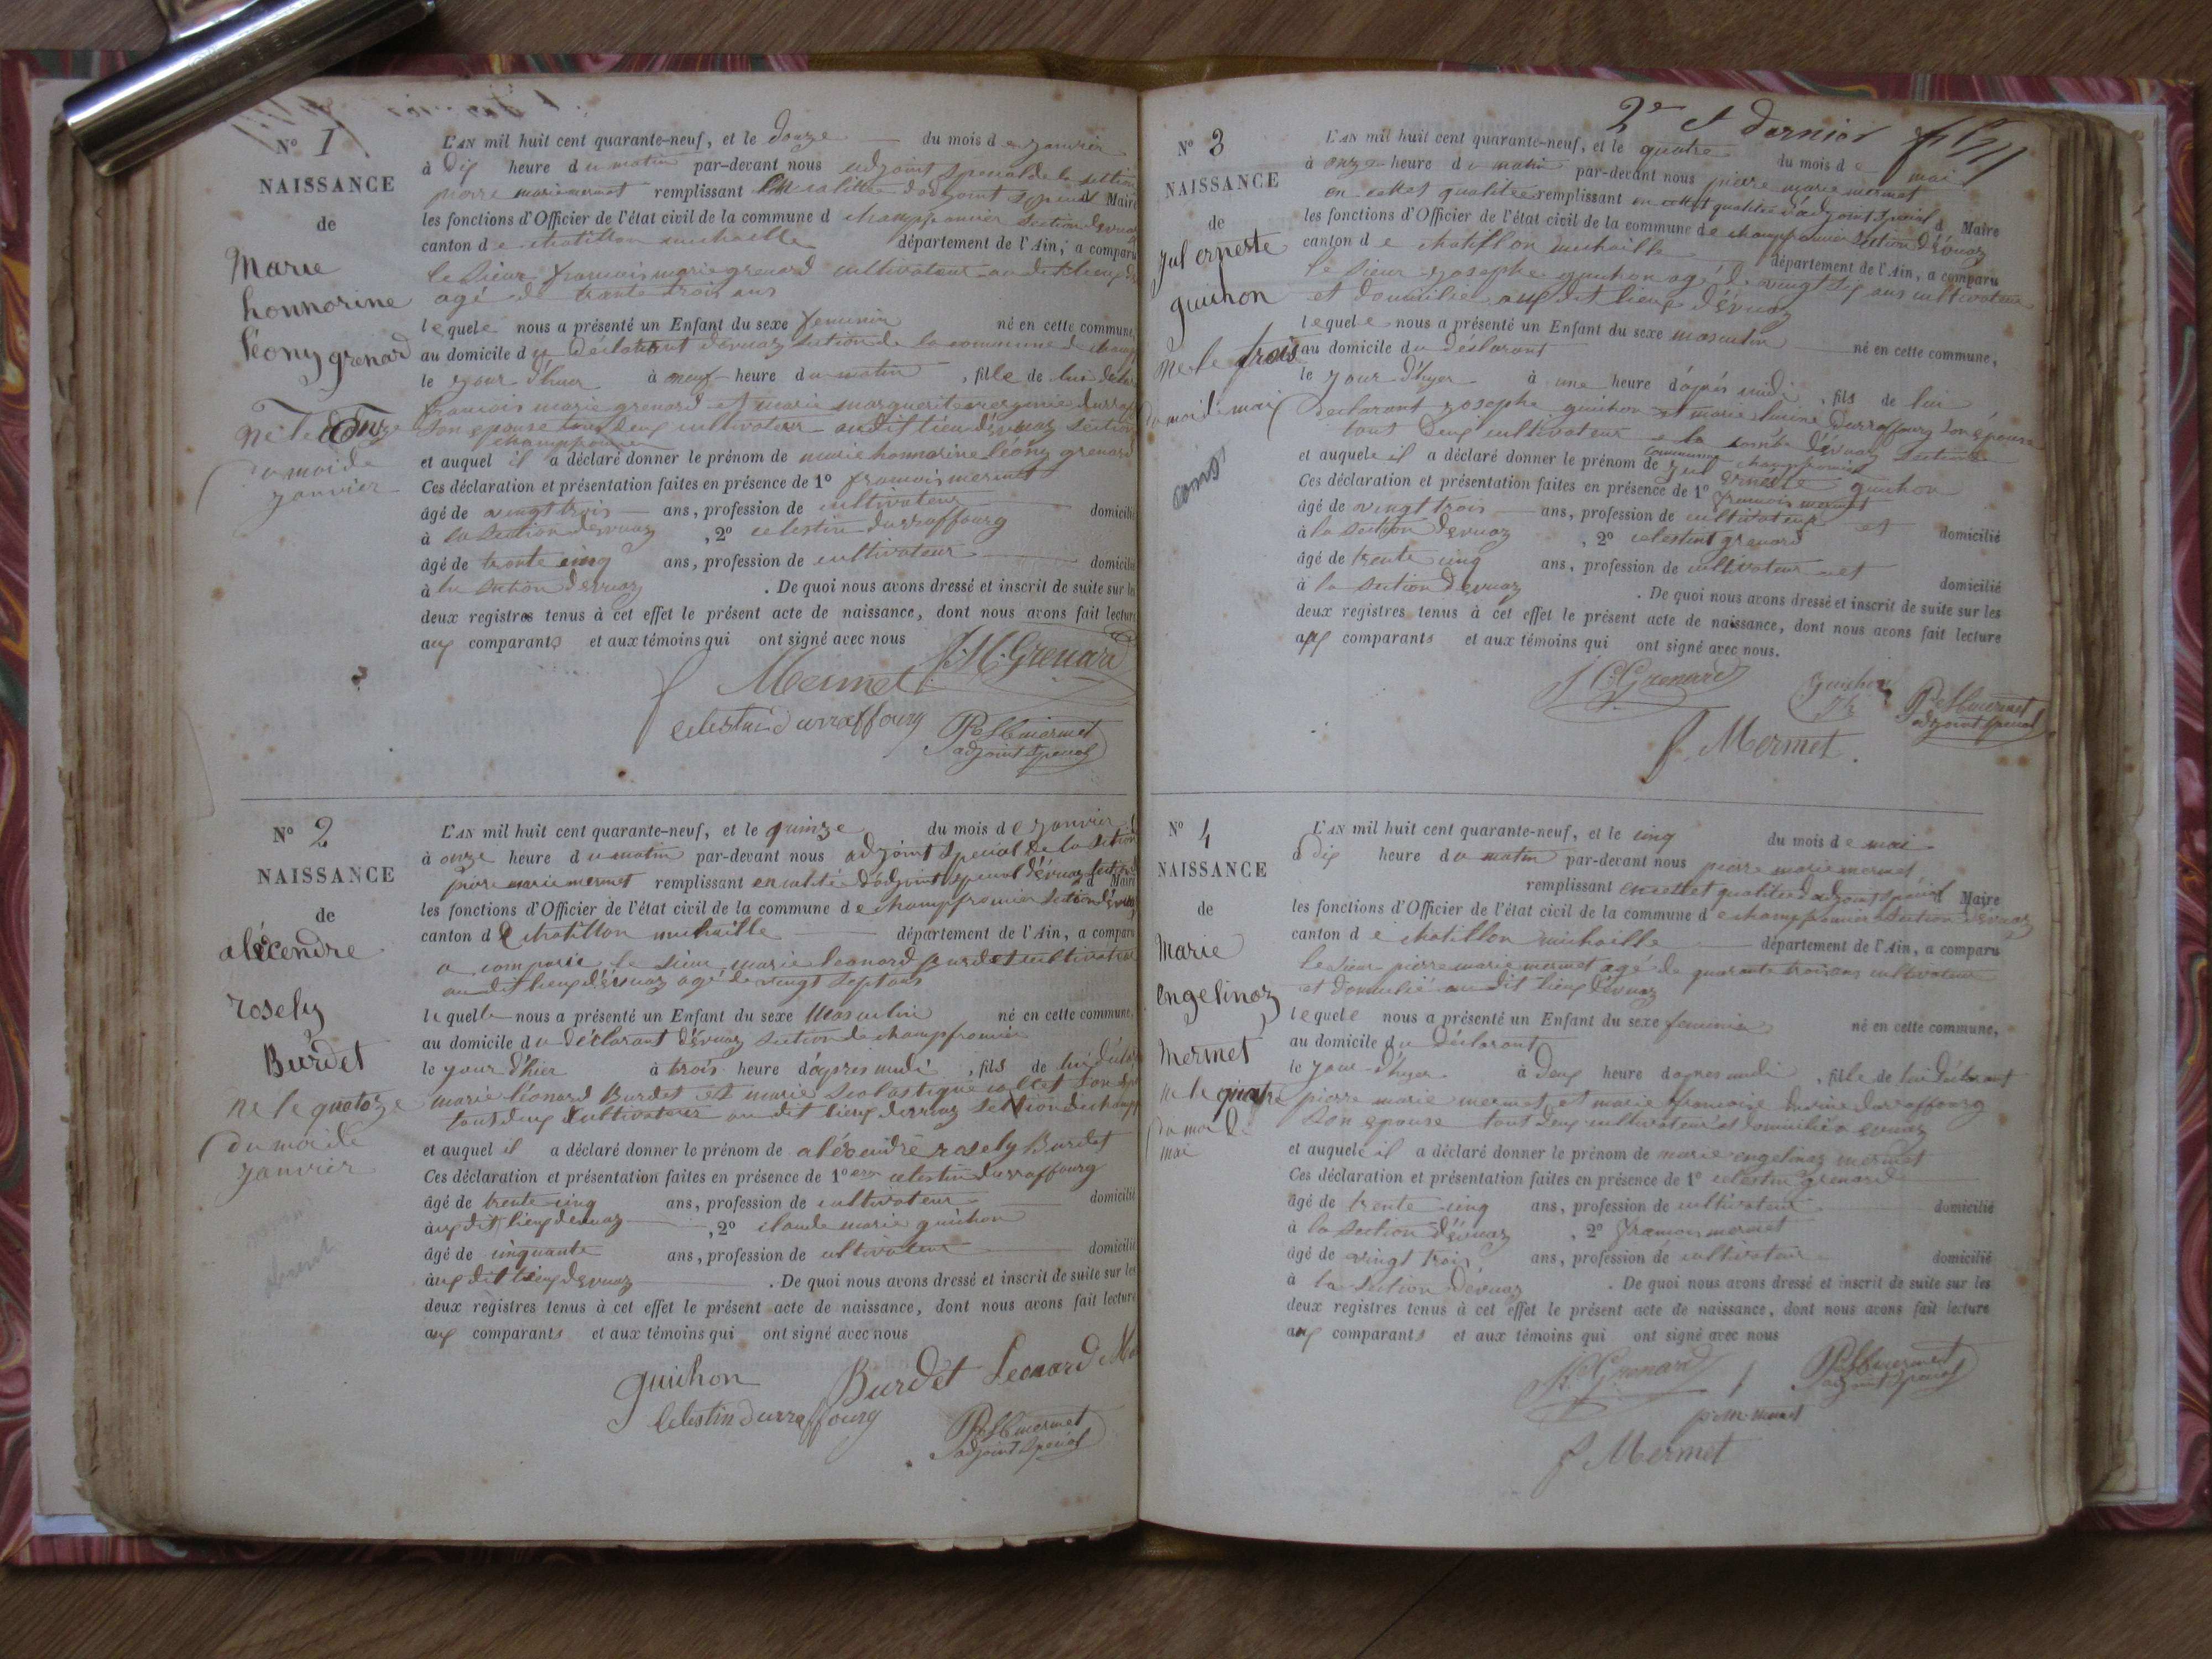 N° 1
NAISSANCE
de
Marie
honnorine
léony grenard
né le douze
du mois de
janvier
L'AN mil huit cent quarante-neuf, et le douze du mois de janvier
à dix heure du matin par-devant nous adjoint spécial de la section
pierre marie mermet remplissant en calitté d'adjoint spécial d Maire
les fonctions d'Officier de l'état civil de la commune d champfromier section d'évuaz
canton de chatillon michaille département de l'Ain, a comparu
le sieur francois marie grenard cultivateur au dit lieux
agé de trante trois ans
lequele nous a présenté un Enfant du sexe femenin né en cette commune,
au domicile du déclarant d'évuaz section de la commune de
le jour d'hui à neuf heure du matin, fille de lui
francois marie grenard et marie marguerite
son epouse tous deux cultivateur audit lieu d'évuaz section
champfromier
et auquel il a déclaré donner le prénom de marie honnorine léony grenard
Ces déclaration et présentation faites en présence de 1° francois mermet
âgé de vingt trois ans, profession de cultivateur domicilié
à la section d'évuaz, 2° celestin durraffourg
âgé de trente cinq ans, profession de cultivateur domicilié
à la section d'évuaz. De quoi nous avons dressé et inscrit de suite sur les
deux registres tenus à cet effet le présent acte de naissance, dont nous avons fait lecture
aux comparants et aux témoins qui ont signé avec nous
f Mermet F.M. Grenard
celestin durraffourg P M mermet
adjoint spécial
N° 2
NAISSANCE
de
aléxcendre
rosely
Burdet
né le quatoze
du moi de
janvier
L'AN mil huit cent quarante-neuf, et le quinze du mois de janvier
à onze heure du matin par-devant nous adjoint spécial de la section
pierre marie mermet remplissant en calité d'adjoint spécial d'évuaz section d Maire
les fonctions d'Officier de l'état civil de la commune de champfromier section d'évuaz
canton d chatillon michaille département de l'Ain, a comparu
a comparu le sieur marie leonard Burdet cultivateur
au dit lieux d'évuaz agé de vingt sept ans
lequelle nous a présenté un Enfant du sexe Masculin né en cette commune,
au domicile du déclarant d'évuaz section de champfromier
le jour d'hier à trois heure d'apres midi, fils de lui
marie léonard Burdet et marie scolastique
tout deux cultivateur au dit lieux d'evuaz section de
et auquel il a déclaré donner le prénom de aléxendre rosely Burdet
Ces déclaration et présentation faites en présence de 1° celestin durraffourg
âgé de trente cinq ans, profession de cultivateur domicilié
aux dit lieux d'evuaz, 2° claude marie guichon
âgé de cinquante ans, profession de cultivateur domicilié
aux dit lieux d'evuaz. De quoi nous avons dressé et inscrit de suite sur les
deux registres tenus à cet effet le présent acte de naissance, dont nous avons fait lecture
aux comparants et aux témoins qui ont signé avec nous
guichon Burdet Leonard
Celestin durraffourg P M mermet
adjoint spécial
2e et dernier
N° 3
NAISSANCE
de
jul erneste
guichon
né le trois
du moi de mai
L'AN mil huit cent quarante-neuf, et le quatre du mois de mai
à onze heure du matin par-devant nous pierre marie mermet
en cettes qualitée remplissant en cettes qualitée d'adjoint spécial d Maire
les fonctions d'Officier de l'état civil de la commune de champfromier section d'évuaz
canton de chatillon michaille département de l'Ain, a comparu
le sieur josephe guichon agé de vingt six ans cultivateur
et domicilié aux dit lieux d'évuaz
lequele nous a présenté un Enfant du sexe masculin né en cette commune,
au domicile du déclarant
le jour d'hyer à une heure d'après midi, fils de lui
declarant josephe guichon et marie durraffourg son épouse
tout deux cultivateur à la d'évuaz section
commune champfromier
et auquele il a déclaré donner le prénom de jul erneste guichon
Ces déclaration et présentation faites en présence de 1° francois mermet
âgé de vingt trois ans, profession de cultivateur et domicilié
à la section d'evuaz, 2° celestint grenard
âgé de trente cinq ans, profession de cultivateur et domicilié
à la section d'evuaz. De quoi nous avons dressé et inscrit de suite sur les
deux registres tenus à cet effet le présent acte de naissance, dont nous avons fait lecture
aux comparants et aux témoins qui ont signé avec nous.
Grenard guichon P M mermet
adjoint spécial
f. Mermet
N° 4
NAISSANCE
de
Marie
engelinaz
Mermet
né le quatre
du moi de
mai
L'AN mil huit cent quarante-neuf, et le cinq du mois de mai
à dix heure du matin par-devant nous pierre marie mermet
remplissant en cettet qualitée d'adjoint spécial d Maire
les fonctions d'Officier de l'état civil de la commune de champfromier section d'évuaz
canton de chatillon michaille département de l'Ain, a comparu
le sieur pierre marie mermet agé de quarante trois ans cultivateur
et domicilié au dit lieux d'evuaz
lequele nous a présenté un Enfant du sexe femenin né en cette commune,
au domicile du déclarant
le jour d'hyer à deux heure d'apres midi, fille de lui déclarant
pierre marie mermet et marie francoise durraffourg
son epouse tout deux cultivateur et domicilié a evuaz
et auquele il a déclaré donner le prénom de marie engelinaz mermet
Ces déclaration et présentation faites en présence de 1° celestin grenard
âgé de trente cinq ans, profession de cultivateur domicilié
à la section d'évuaz, 2° francois mermet
âgé de vingt trois ans, profession de cultivateur domicilié
à la section d'evuaz. De quoi nous avons dressé et inscrit de suite sur les
deux registres tenus à cet effet le présent acte de naissance, dont nous avons fait lecture
aux comparants et aux témoins qui ont signé avec nous
Grenard P M mermet
adjoint spécial
f Mermet